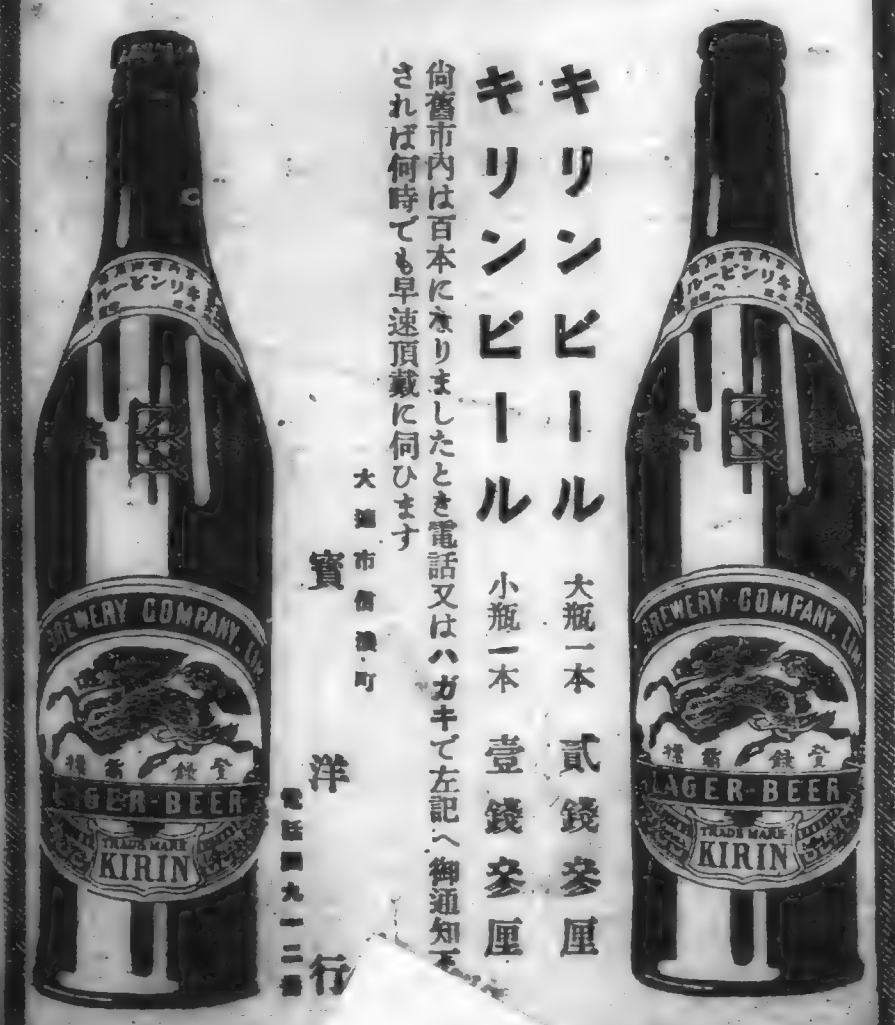 キリンビール 大瓶一本 貳錢參厘
キリンビール 小瓶一本 壹錢參厘
尙舊市內は百本になりましたとき電話又はハガキで左記へ御通知下
されば何時でも早速頂戴に伺ひます
大連市信濃町
寳洋行
電話 九一二番
キリンビール
BREWERY COMPANY, LIM
登錄商標
LAGER-BEER
TRADE MARK
KIRIN
キリンビール
BREWERY COMPANY, LIM
登錄商標
LAGER-BEER
TRADE MARK
KIRIN